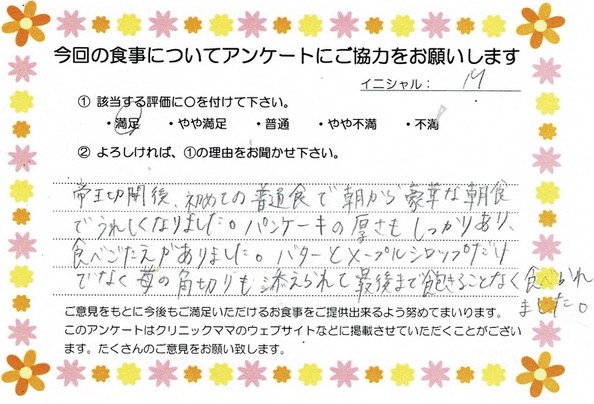 今回の食事についてアンケートにご協力をお願いします
イニシャル： M
① 該当する評価に○を付けて下さい。
・満足 ・やや満足 ・普通 ・やや不満 ・不満
② よろしければ、①の理由をお聞かせ下さい。
帝王切開後、初めての普通食で朝から豪華な朝食
でうれしくなりました。パンケーキの厚さもしっかりあり、
食べごたえがありました。バターとメープルシロップだけ
でなく苺の角切りも添えられて最後まで飽きることなく食べられ
ました。
ご意見をもとに今後もご満足いただけるお食事をご提供出来るよう努めてまいります。
このアンケートはクリニックママのウェブサイトなどに掲載させていただくことがござい
ます。たくさんのご意見をお願い致します。